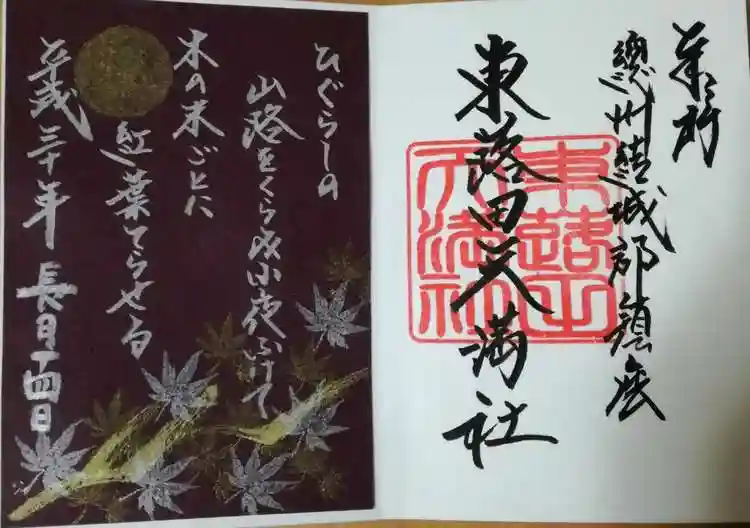 總州結城郡鎮座
東蕗田天満社
東蕗田
天満社
ひぐらしの
山路をくらみ小夜ふけて
木の末ごとに
紅葉てらせる
平成三十年 長月十四日